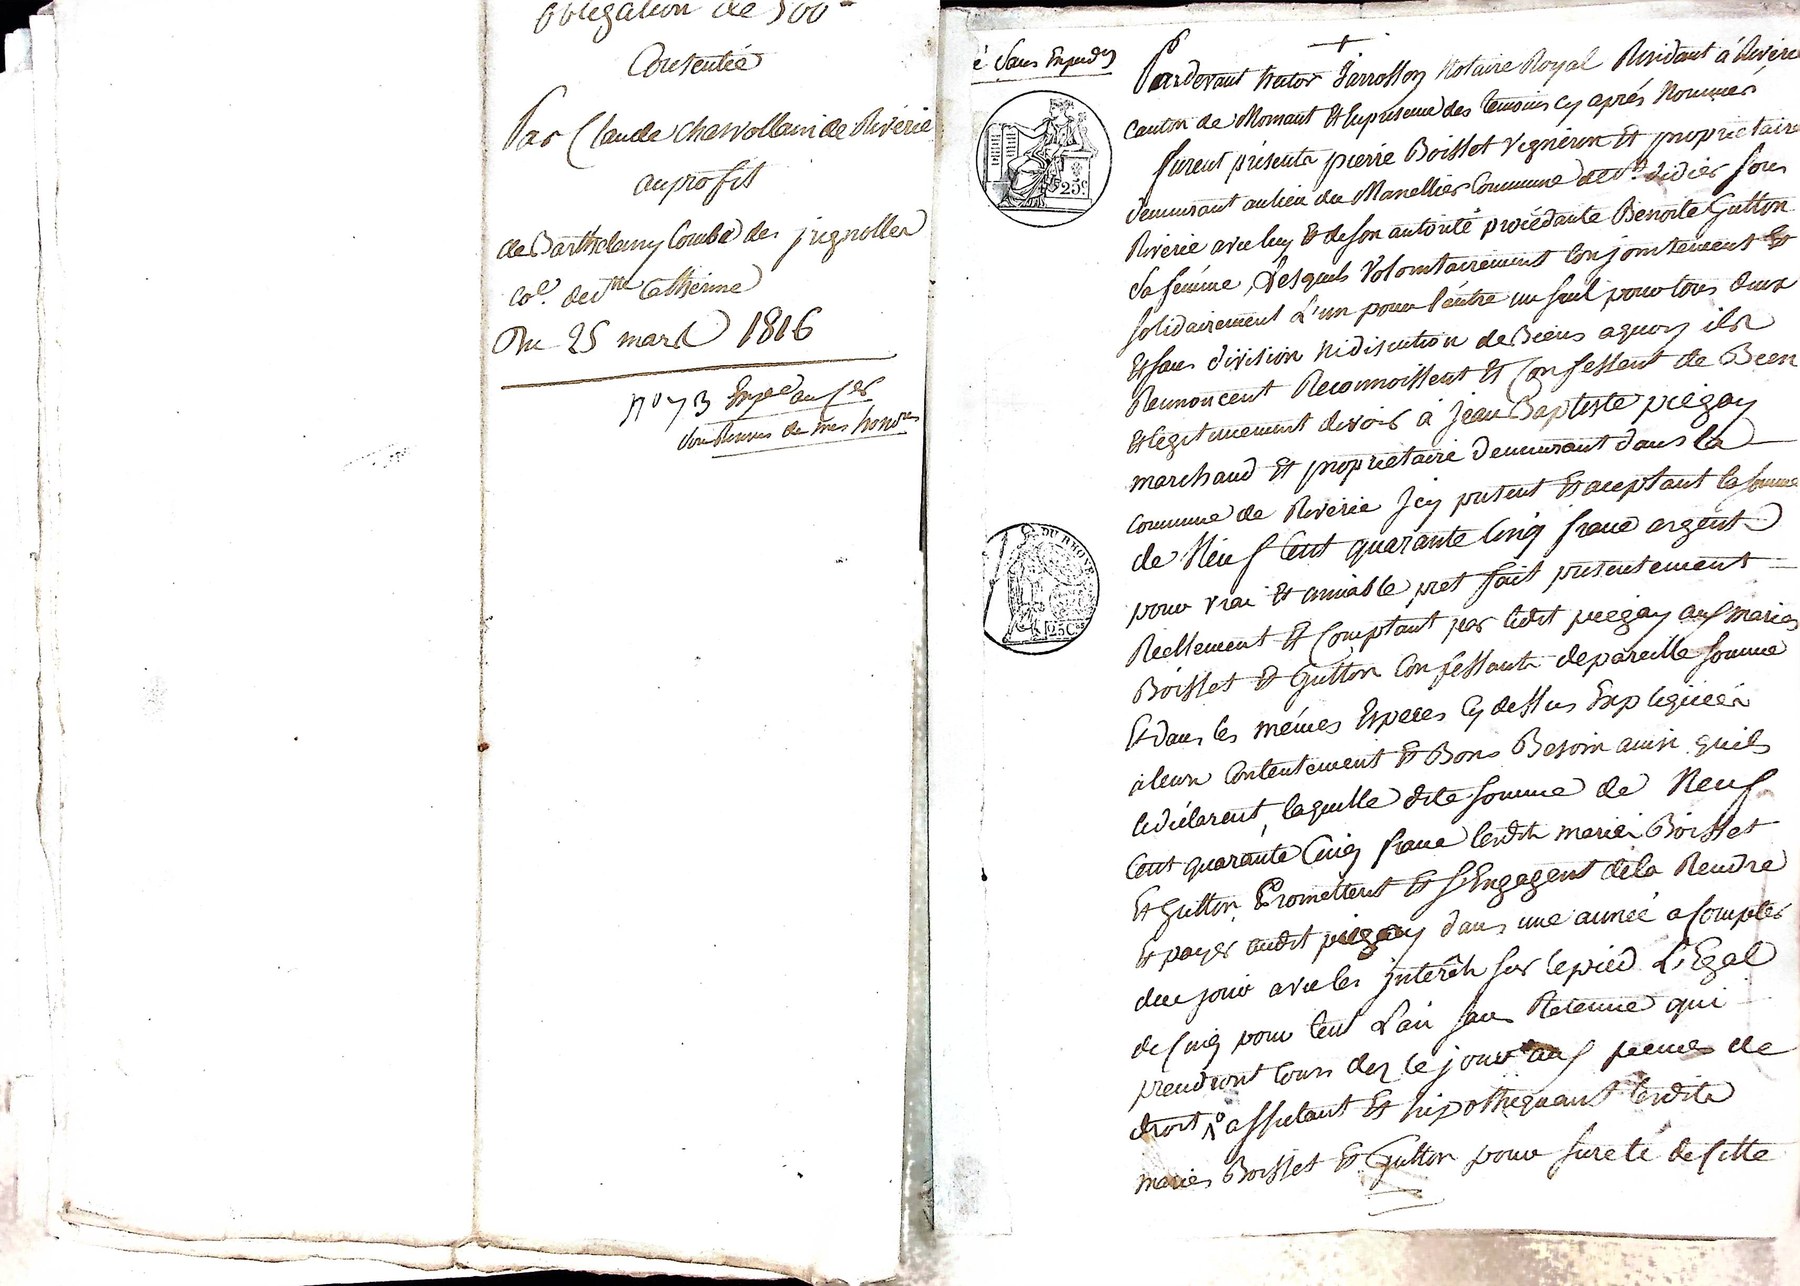 obligation de 500
Consentie
Par Claude Chavollain de Riverie
au profit
de Barthelemy Combe des jugnolles
co.e de Ste Catherine
Du 25 mars 1816
n° 73 Exp.ée au Cer
é Sans Expedon
Pardevant Nutor Jarrosson Notaire Royal Residant á Riverie
Canton de Mornant Et En presence des temoins cy aprés Nommés
furent présents pierre Boisset Vigneron Et propriétaire
demeurant au lieu du Manellier Commune de St. didier sous
Riverie avec luy Et de son autorité procédante Benoite Gutton
Sa femme, Lesquels Volontairement Conjointement Et
Solidairement L'un pour l'autre un seul pour tous deux
Et sans division ni discution de Biens aquoy ils
Rennoncent Reconnoissent Et Confessent de Bien
Et legitimement devoir à Jean Baptiste piégay
marchand Et proprietaire demeurant dans la
commune de Riverie Icy present Et acceptant la somme
de Neuf Cent quarante Cinq franc argent
pour vrai Et amiable pret fait presentement
Reellement Et Comptant par ledit piegay aux mariés
Boisset Et Gutton Confessants de pareille somme
Et dans les mémes Especes Cy dessus Expliquées
à leur Contentement Et Bons Besoin ainsi quils
le déclarent, laquelle dite somme de Neuf
Cent quarante Cinq franc lesdits mariés Boisset
Et Gutton, Promettent Et s'Engagent de la Rendre
Et payer audit piegay dans une année a Compter
du jour avec les interêts sur le pied L'Egal
de Cinq pour Cent L'an sans Retenue qui
prendront Cours dez ce jour aux peines de
droit, assurant Et hipothequant lesdits
mariés Boisset Et Gutton pour sureté de Cette
25 C
DU RHONE
25 Ces